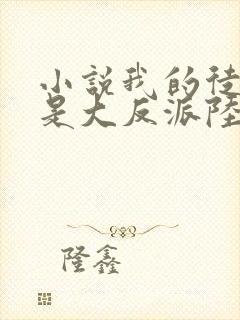 小說我的徒
是大反派陸
隆鑫